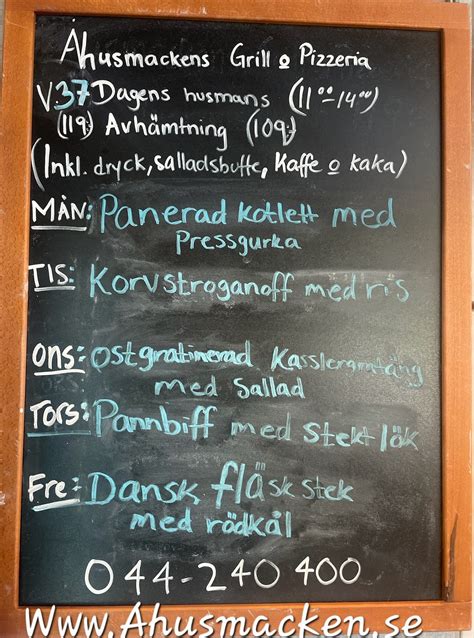 Åhusmackens Grill o Pizzeria
V.37 Dagens husmans (11⁰⁰-14⁰⁰)
(119:) Avhämtning (109:)
(Inkl. dryck, salladsbuffe, Kaffe o kaka)
MÅN: Panerad kotlett med
Pressgurka
TIS: Korvstroganoff med ris
ONS: Ostgratinerad Kasslergratäng
med Sallad
TORS: Pannbiff med stekt lök
Fre: Dansk fläsk stek
med rödkål
044-240 400
Www.Ahusmacken.se